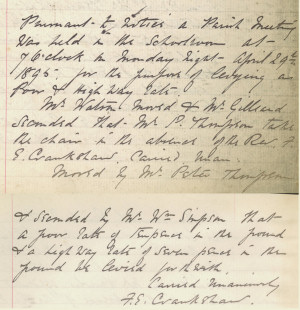 Pursuant to Notice a Parish Meeting
was held in the Schoolroom at
7 o'clock on Monday Night April 29th
1895 for the purpose of levying a
Poor & High Way Rate.
Mr Walton Moved & Mr Gilliard
seconded that Mr P. Thompson take
the chair in the absence of the Rev. F.
E. Crankshaw, Carried Unan.
Moved by Mr Peter Thompson
& Seconded by Mr Wm Simpson that
a poor Rate of Tenpence in the pound
& a high Way Rate of Seven pence in the
pound be levied forthwith.
Carried Unanimously
F. E. Crankshaw.